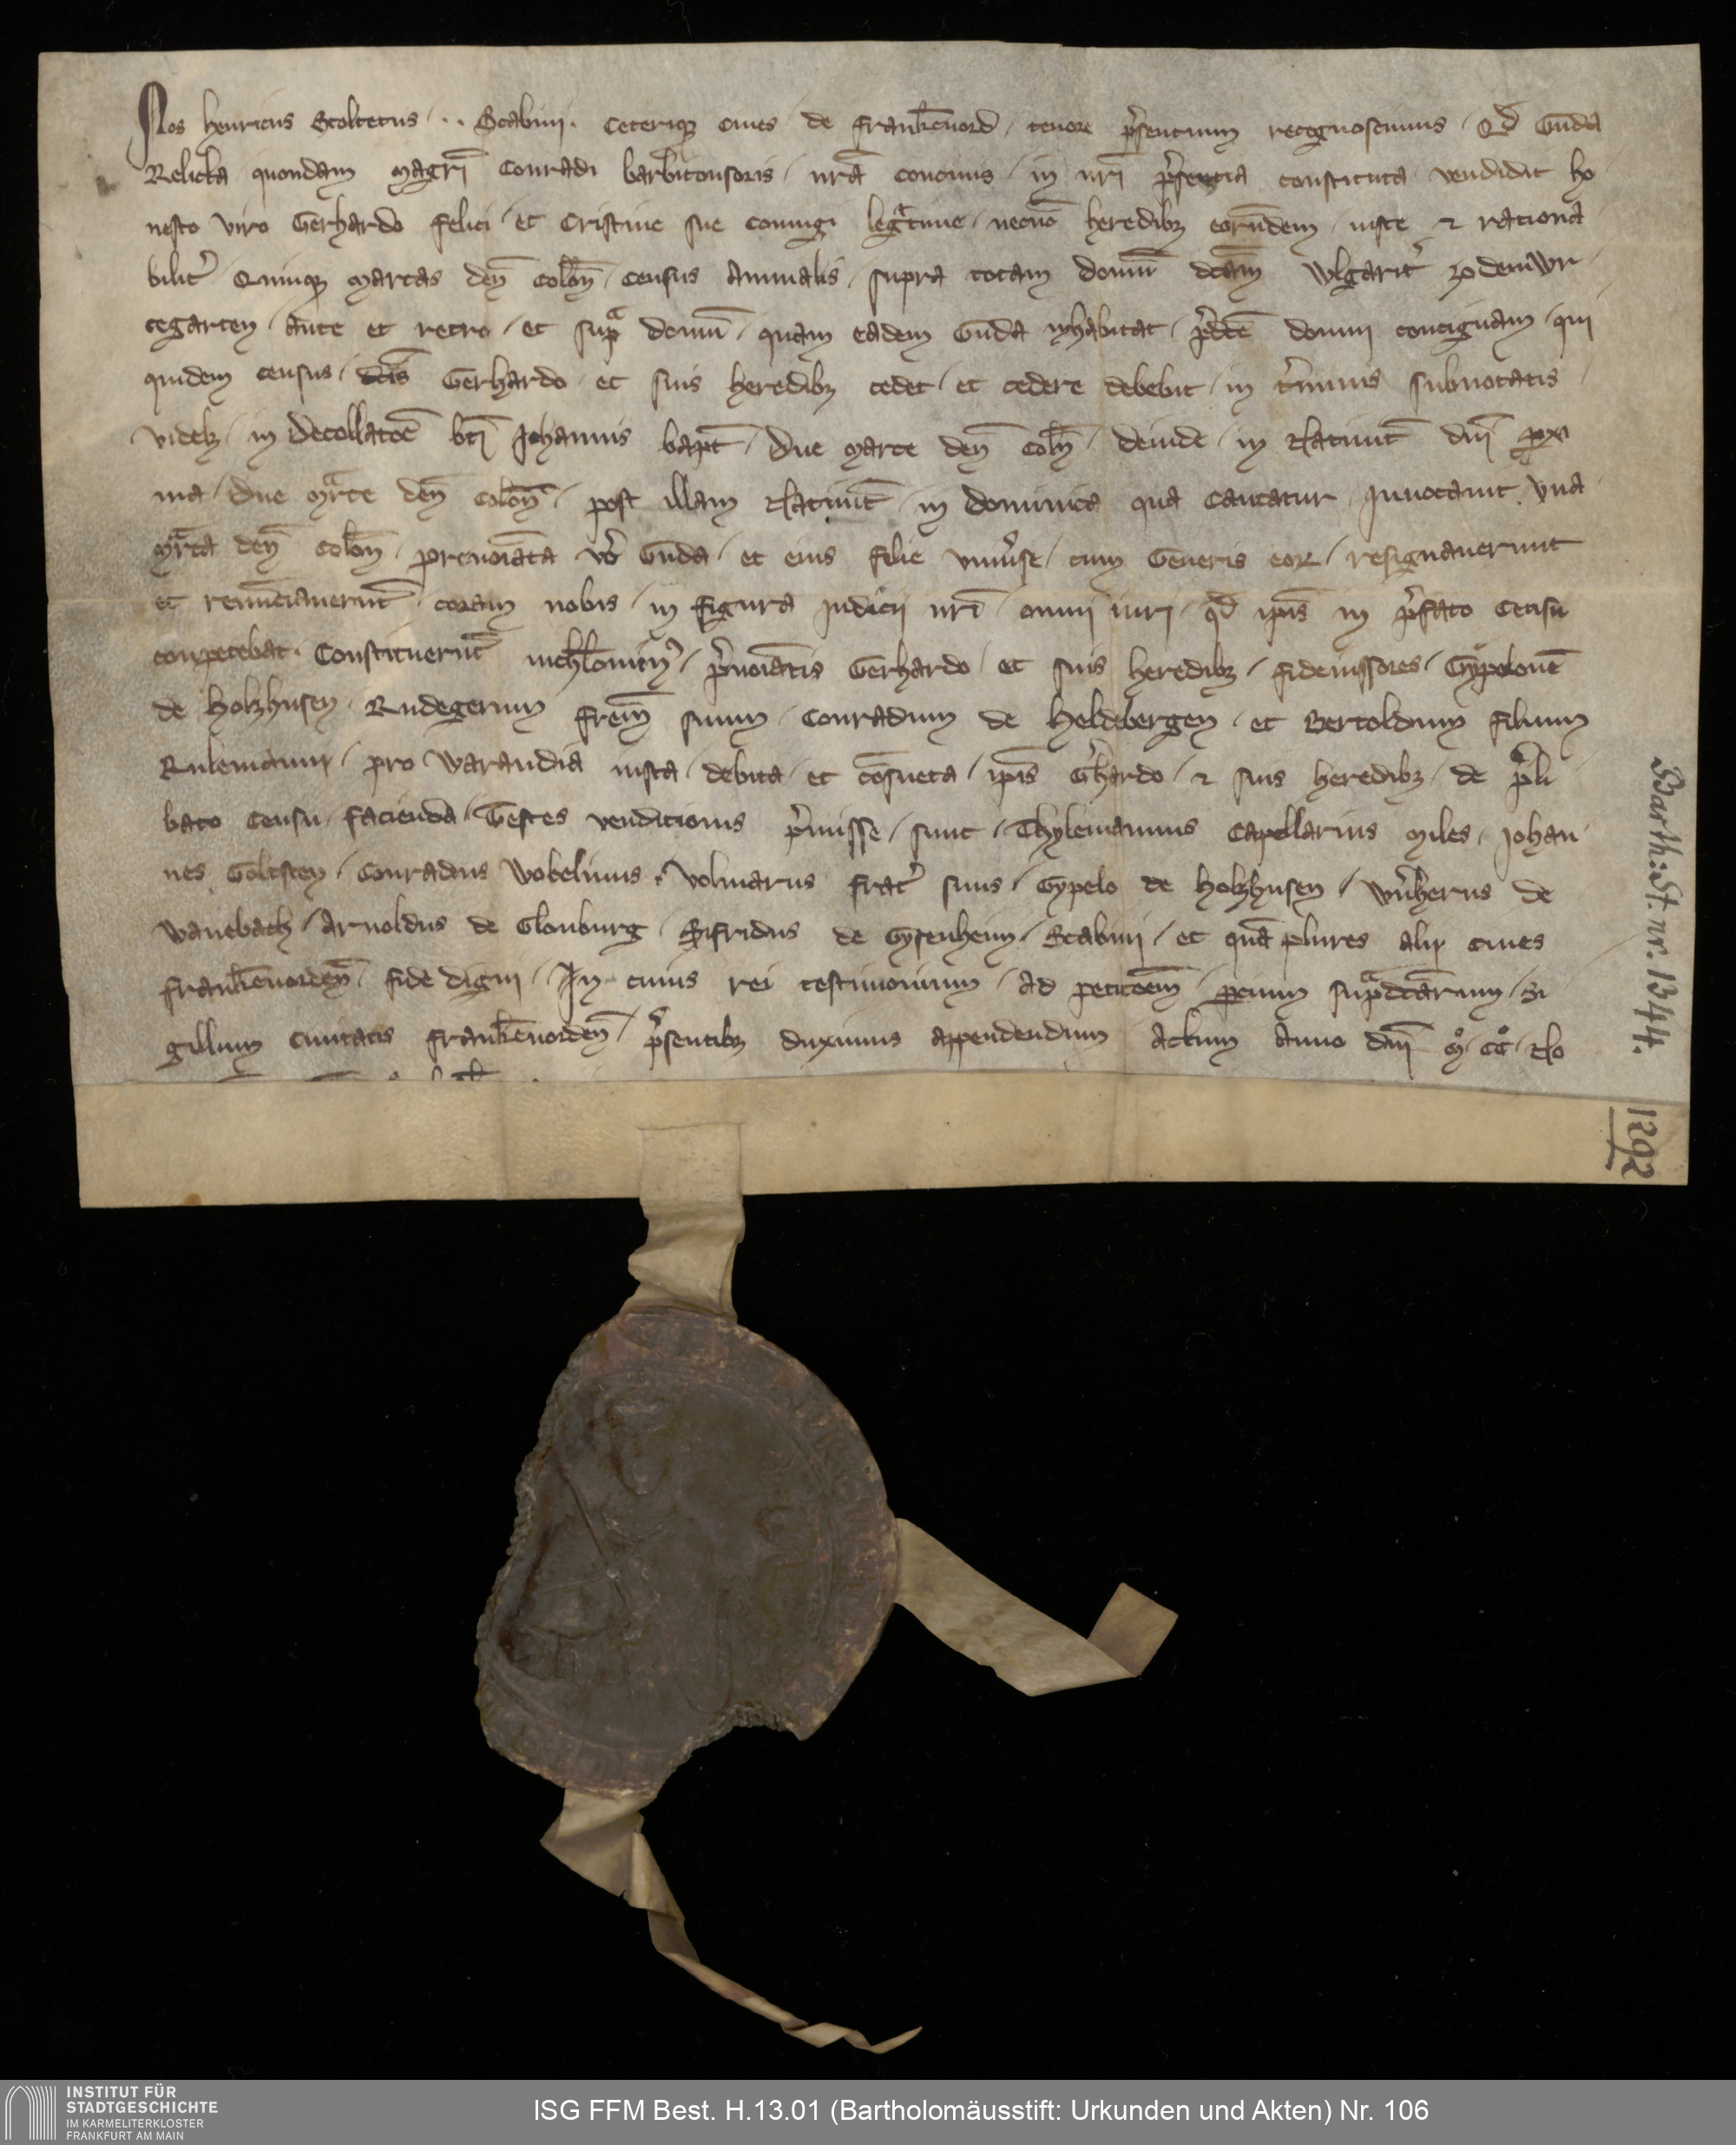 Nos Henricus Scoltetus ·· Scabini · Ceteriqȝ Ciues de Frankēuord / tenore p̄sentium recognoscimus / Qd Gūda
Relicta quondam magr̄i Conradi barbitonsoris / nr̄a conciuis / in nr̄i p̄sentia constituta vendidit ho
nesto viro Gerhardo Felici / et Cristine sue coniugi legitime / necnō heredibȝ eorūdem / iuste ⁊ rationa
bilit̄ Quinqȝ marcas den̄ Colon̄ / census Annualis / supra totam domū dc̄am wlgarit̄ zo dem wr
tegarten / ante et retro / et supra domū / quam eadem Gūda inhabitat / p̄dc̄e domui contiguam / qui
quidem census / dc̄is Gerhardo et suis heredibȝ cedet / et cedere debebit / in t̄minis subnotatis
videlȝ / in Decollatōe bt̄i Johannis bapt̄ / due marce den̄ Coln̄ / deinde / in Natiuit̄ dn̄i proxi
ma / due mr̄ce den̄ Colon̄ / post illam Natiuit̄ / in dominica qua cantatur Inuocauit vna
mr̄ca den̄ Colon̄ / prenoīata v̄o Gūda / et eius filie vniūse / cum Generis eor̄ / resignauerunt
et renūciauerunt̄ coram nobis / in figura Judicii nr̄i omni iuri / qd ip̄is in p̄fato censu
conpetebat · Constituerūt nichilomin̄ / p̄noīatis Gerhardo et suis heredibȝ / fideiussores / Gypelonē
de Holzhusen · Rudegerum fr̄em suum / Conradum de Heldebergen / et Bertoldum filium
Rulemanni / pro warandia iusta / debita / et cōsueta / ip̄is Gh̄ardo / ⁊ suis heredibȝ / de p̄li
bato censu facienda / Testes venditionis p̄misse / sunt / Thylemannus Capellarius miles / Johan
nes Goltsten / Conradus Wobelinus / Volmarus frat̄ suus / Gypelo de Holzhusen / Wn̄herus de
Wanebach / Arnoldus de Glouburg / Sifridus de Gysenheim / Scabini / et quā plures alii ciues
Frankēuorden̄ / fide digni / In cuius rei testimonium / ad petitōem / parcium supradc̄arum / Si
gillum Ciuitatis Frankēuorden̄ / p̄sentibȝ duximus appendendum Actum Anno dn̄i M° CC° No
Barth: St. nr. 1344.
1292
INSTITUT FÜR
STADTGESCHICHTE
IM KARMELITERKLOSTER
FRANKFURT AM MAIN
ISG FFM Best. H.13.01 (Bartholomäusstift: Urkunden und Akten) Nr. 106